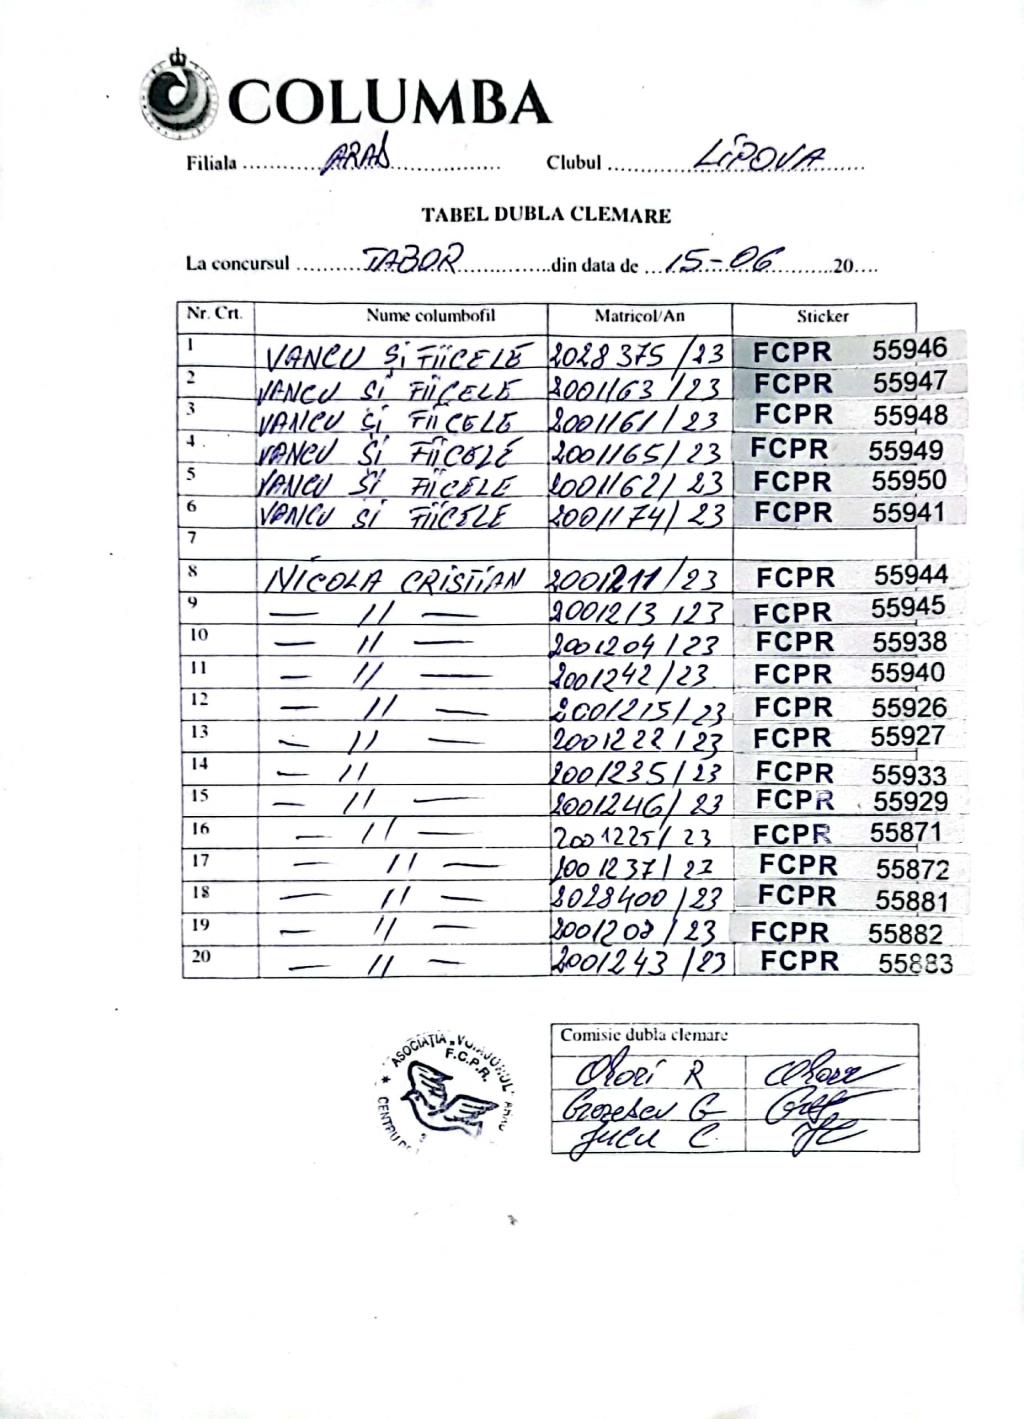 COLUMBA
Filiala ........ARAD........ Clubul ........LIPOVA........
TABEL DUBLA CLEMARE
La concursul ........TABOR........din data de ...15-06........20....
Nr. Crt. Nume columbofil Matricol/An Sticker
1 VANCU ȘI FIICELE 2028375/23 FCPR 55946
2 VANCU SI FIICELE 2001163/23 FCPR 55947
3 VANCU SI FIICELE 2001161/23 FCPR 55948
4 VANCU SI FIICELE 2001165/23 FCPR 55949
5 VANCU SI FIICELE 2001162/23 FCPR 55950
6 VANCU SI FIICELE 2001174/23 FCPR 55941
7
8 NICOLA CRISTIAN 2001211/23 FCPR 55944
9 — // — 2001213/23 FCPR 55945
10 — // — 2001204/23 FCPR 55938
11 — // — 2001242/23 FCPR 55940
12 — // — 2001215/23 FCPR 55926
13 — // — 2001222/23 FCPR 55927
14 — // 2001235/23 FCPR 55933
15 — // — 2001246/23 FCPR 55929
16 — // — 2001225/23 FCPR 55871
17 — // — 2001237/23 FCPR 55872
18 — // — 2028400/23 FCPR 55881
19 — // — /23 FCPR 55882
20 — // — 2001243/23 FCPR 55883
Comisie dubla clemare
R
Grozescu G
C.
ASOCIAȚIA
F.C.P.R.